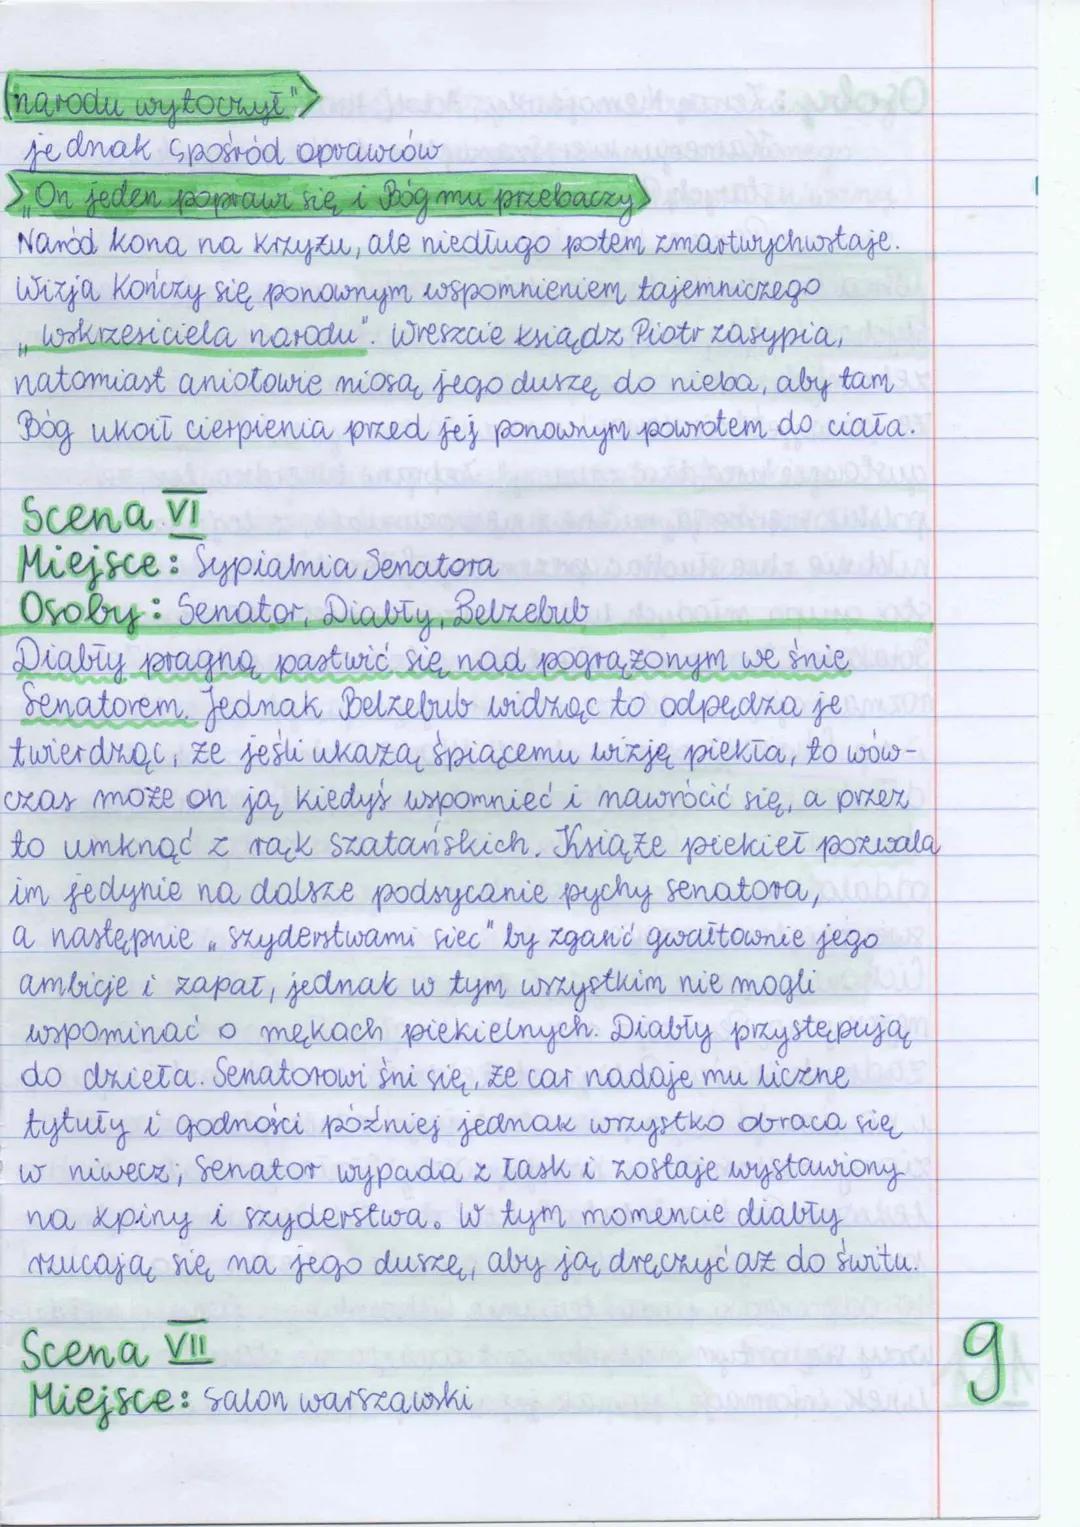 narodu wytoczył"
jednak spośród oprawców
„On jeden poprawi się i Bóg mu przebaczy
Naród kona na krzyżu, ale niedługo potem zmartwychwstaje.
Wizja kończy się ponownym wspomnieniem tajemniczego
„wskrzesiciela narodu". Wreszcie ksiądz Piotr zasypia,
natomiast aniołowie niosą jego duszę do nieba, aby tam
Bóg ukoił cierpienia przed jej ponownym powrotem do ciała.
Scena VI
Miejsce: Sypialnia Senatora
Osoby: Senator, Diabły, Belzebub
Diabły pragną pastwić się nad pogrążonym we śnie
Senatorem. Jednak Belzebub widząc to odpędza je
twierdząc, że jeśli ukażą śpiącemu wizję piekła, to wów-
czas może on ją kiedyś wspomnieć i nawrócić się, a przez
to umknąć z rąk szatańskich. Książe piekieł pozwala
im jedynie na dalsze podsycanie pychy senatora,
a następnie „szyderstwami siec" by zganić gwałtownie jego
ambicje i zapał, jednak w tym wszystkim nie mogli
wspominać o mękach piekielnych. Diabły przystępują
do dzieła. Senatorowi śni się, że car nadaje mu liczne
tytuły i godności później jednak wszystko obraca się
w niwecz; Senator wypada z łask i zostaje wystawiony
na kpiny i szyderstwa. W tym momencie diabły
rzucają się na jego duszę, aby ją dręczyć aż do świtu.
Scena VII
Miejsce: Salon warszawski
9